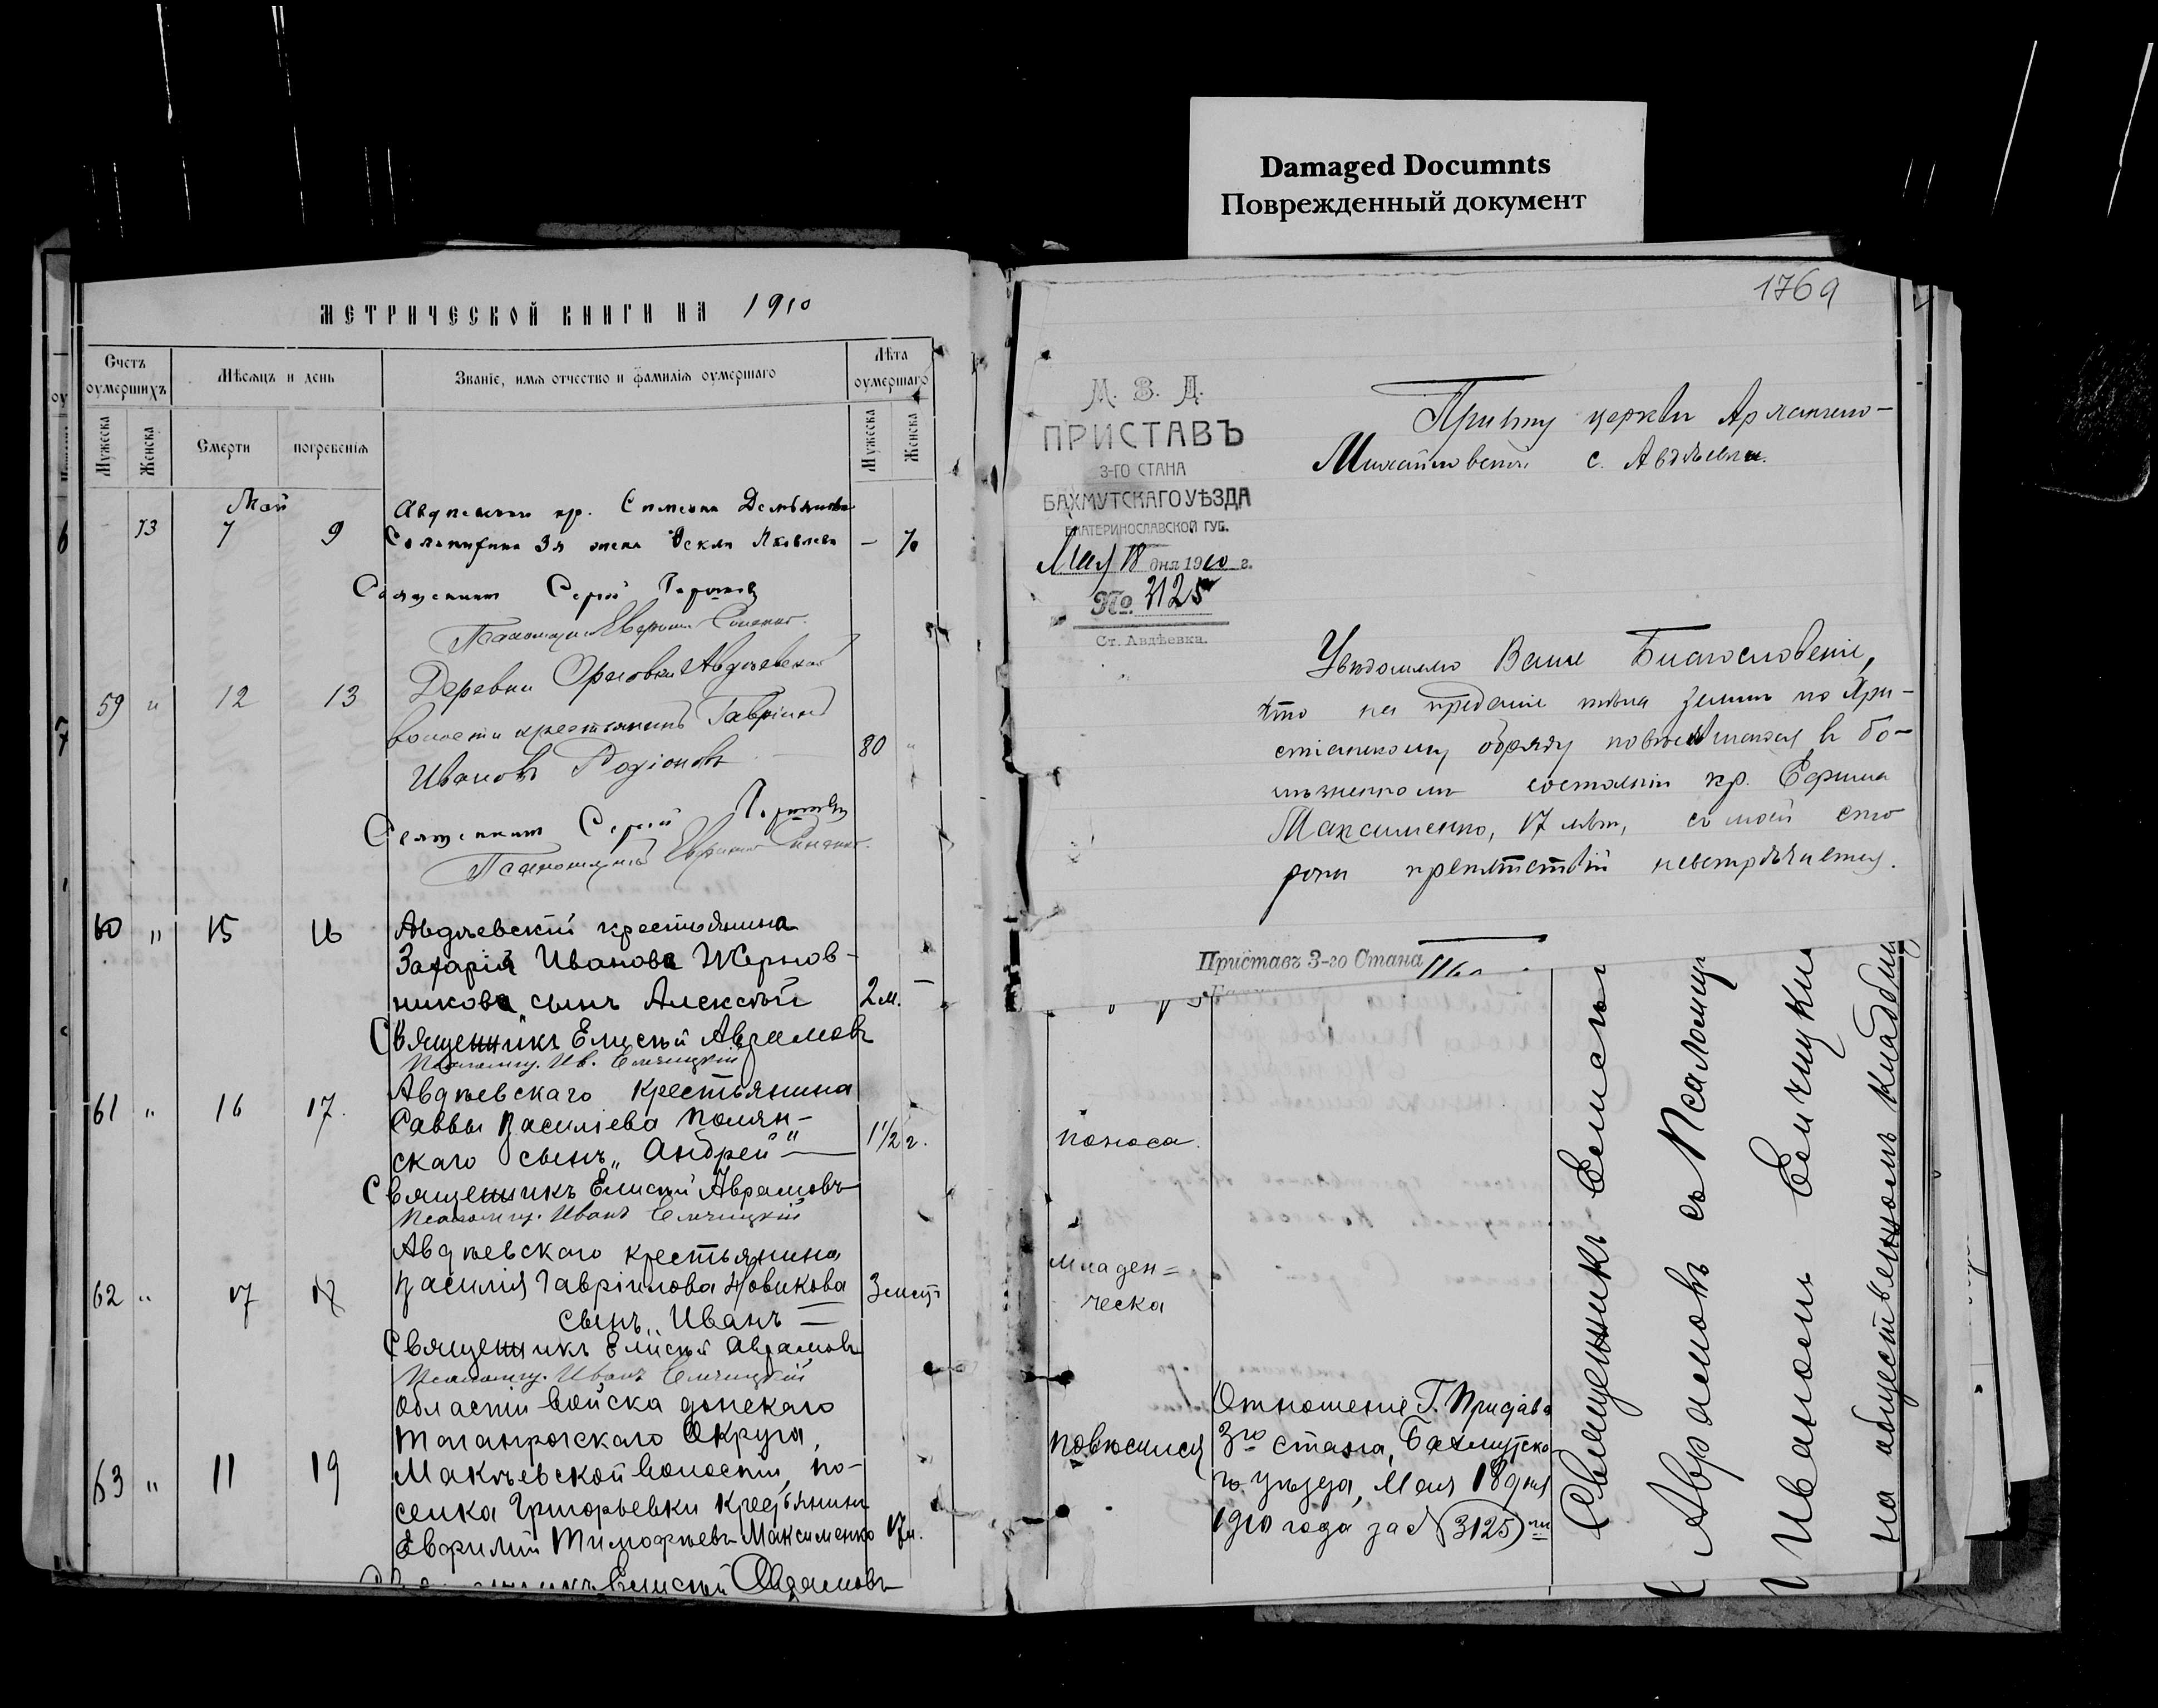 Damaged Documnts
Поврежденный документ
МЕТРИЧЕСКОЙ КНИГИ НА 1910
Счетъ оумершихъ
Мѣсяцъ и день
Званіе, имя отчество и фамилія оумершаго
Лѣта оумершаго
Мужеска
Женска
Смерти
погребенія
Мужеска
Женска
Май
53 7 9
Яковлева — 70
Священникъ Сергій
59 " 12 13
Деревни Орловки Авдѣевской
волости крестьянинъ Гавріилъ
Ивановъ Родіоновъ 80 "
Священникъ Сергій
Псаломщикъ
60 " 15 16
Авдѣевскій крестьянина
Захарія Иванова Жернов-
никова сынъ Алексѣй 2 м. —
Священникъ Елисѣй Аврамовъ
Псаломщ. Ив. Елчицкій
61 " 16 17.
Авдѣевскаго крестьянина
Саввы Василіева Полян-
скаго сынъ „Андрей" 1 1/2 г.
Священникъ Елисѣй Аврамовъ
Псаломщ. Иванъ Елчицкій
62 " 17 18
Авдѣевскаго крестьянина
Василія Гавріилова Новикова
сынъ „Иванъ
Священникъ Елисѣй Аврамовъ
Псаломщ. Иванъ Елчицкій
63 " 11 19
Области Войска донскаго
Таганрогскаго Округа,
Макѣевской волости, по-
селка Григорьевки крестьянинъ
Евфимій Тимофѣевъ Максименко 17 л.
Священникъ Елисѣй Аврамовъ
1769
М. В. Д.
ПРИСТАВЪ
3-ГО СТАНА
БАХМУТСКАГО УѢЗДА
ЕКАТЕРИНОСЛАВСКОЙ ГУБ.
Мая 18 дня 1910 г.
№ 3125
Ст. Авдѣевка.
Причту церкви Архангело-
Михайловской с. Авдѣевки.
Увѣдомляю Ваше Благословеніе,
что на преданіе тѣла землѣ по Хри-
стіанскому обряду повѣсившагося въ бо-
лѣзненномъ состояніи кр. Ефима
Максименко, 17 лѣтъ, съ моей сто-
роны препятствій невстрѣчается.
Приставъ 3-го Стана
поноса.
младен=
ческа
повѣсился
Отношеніе Г. Пристава
3го стана, Бахмутска-
го уѣзда, Мая 18 дня
1910 года за № 3125
Священникъ Елисѣй
Аврамовъ съ Псаломщ
Иваномъ Елчицки
на общественномъ кладбищ